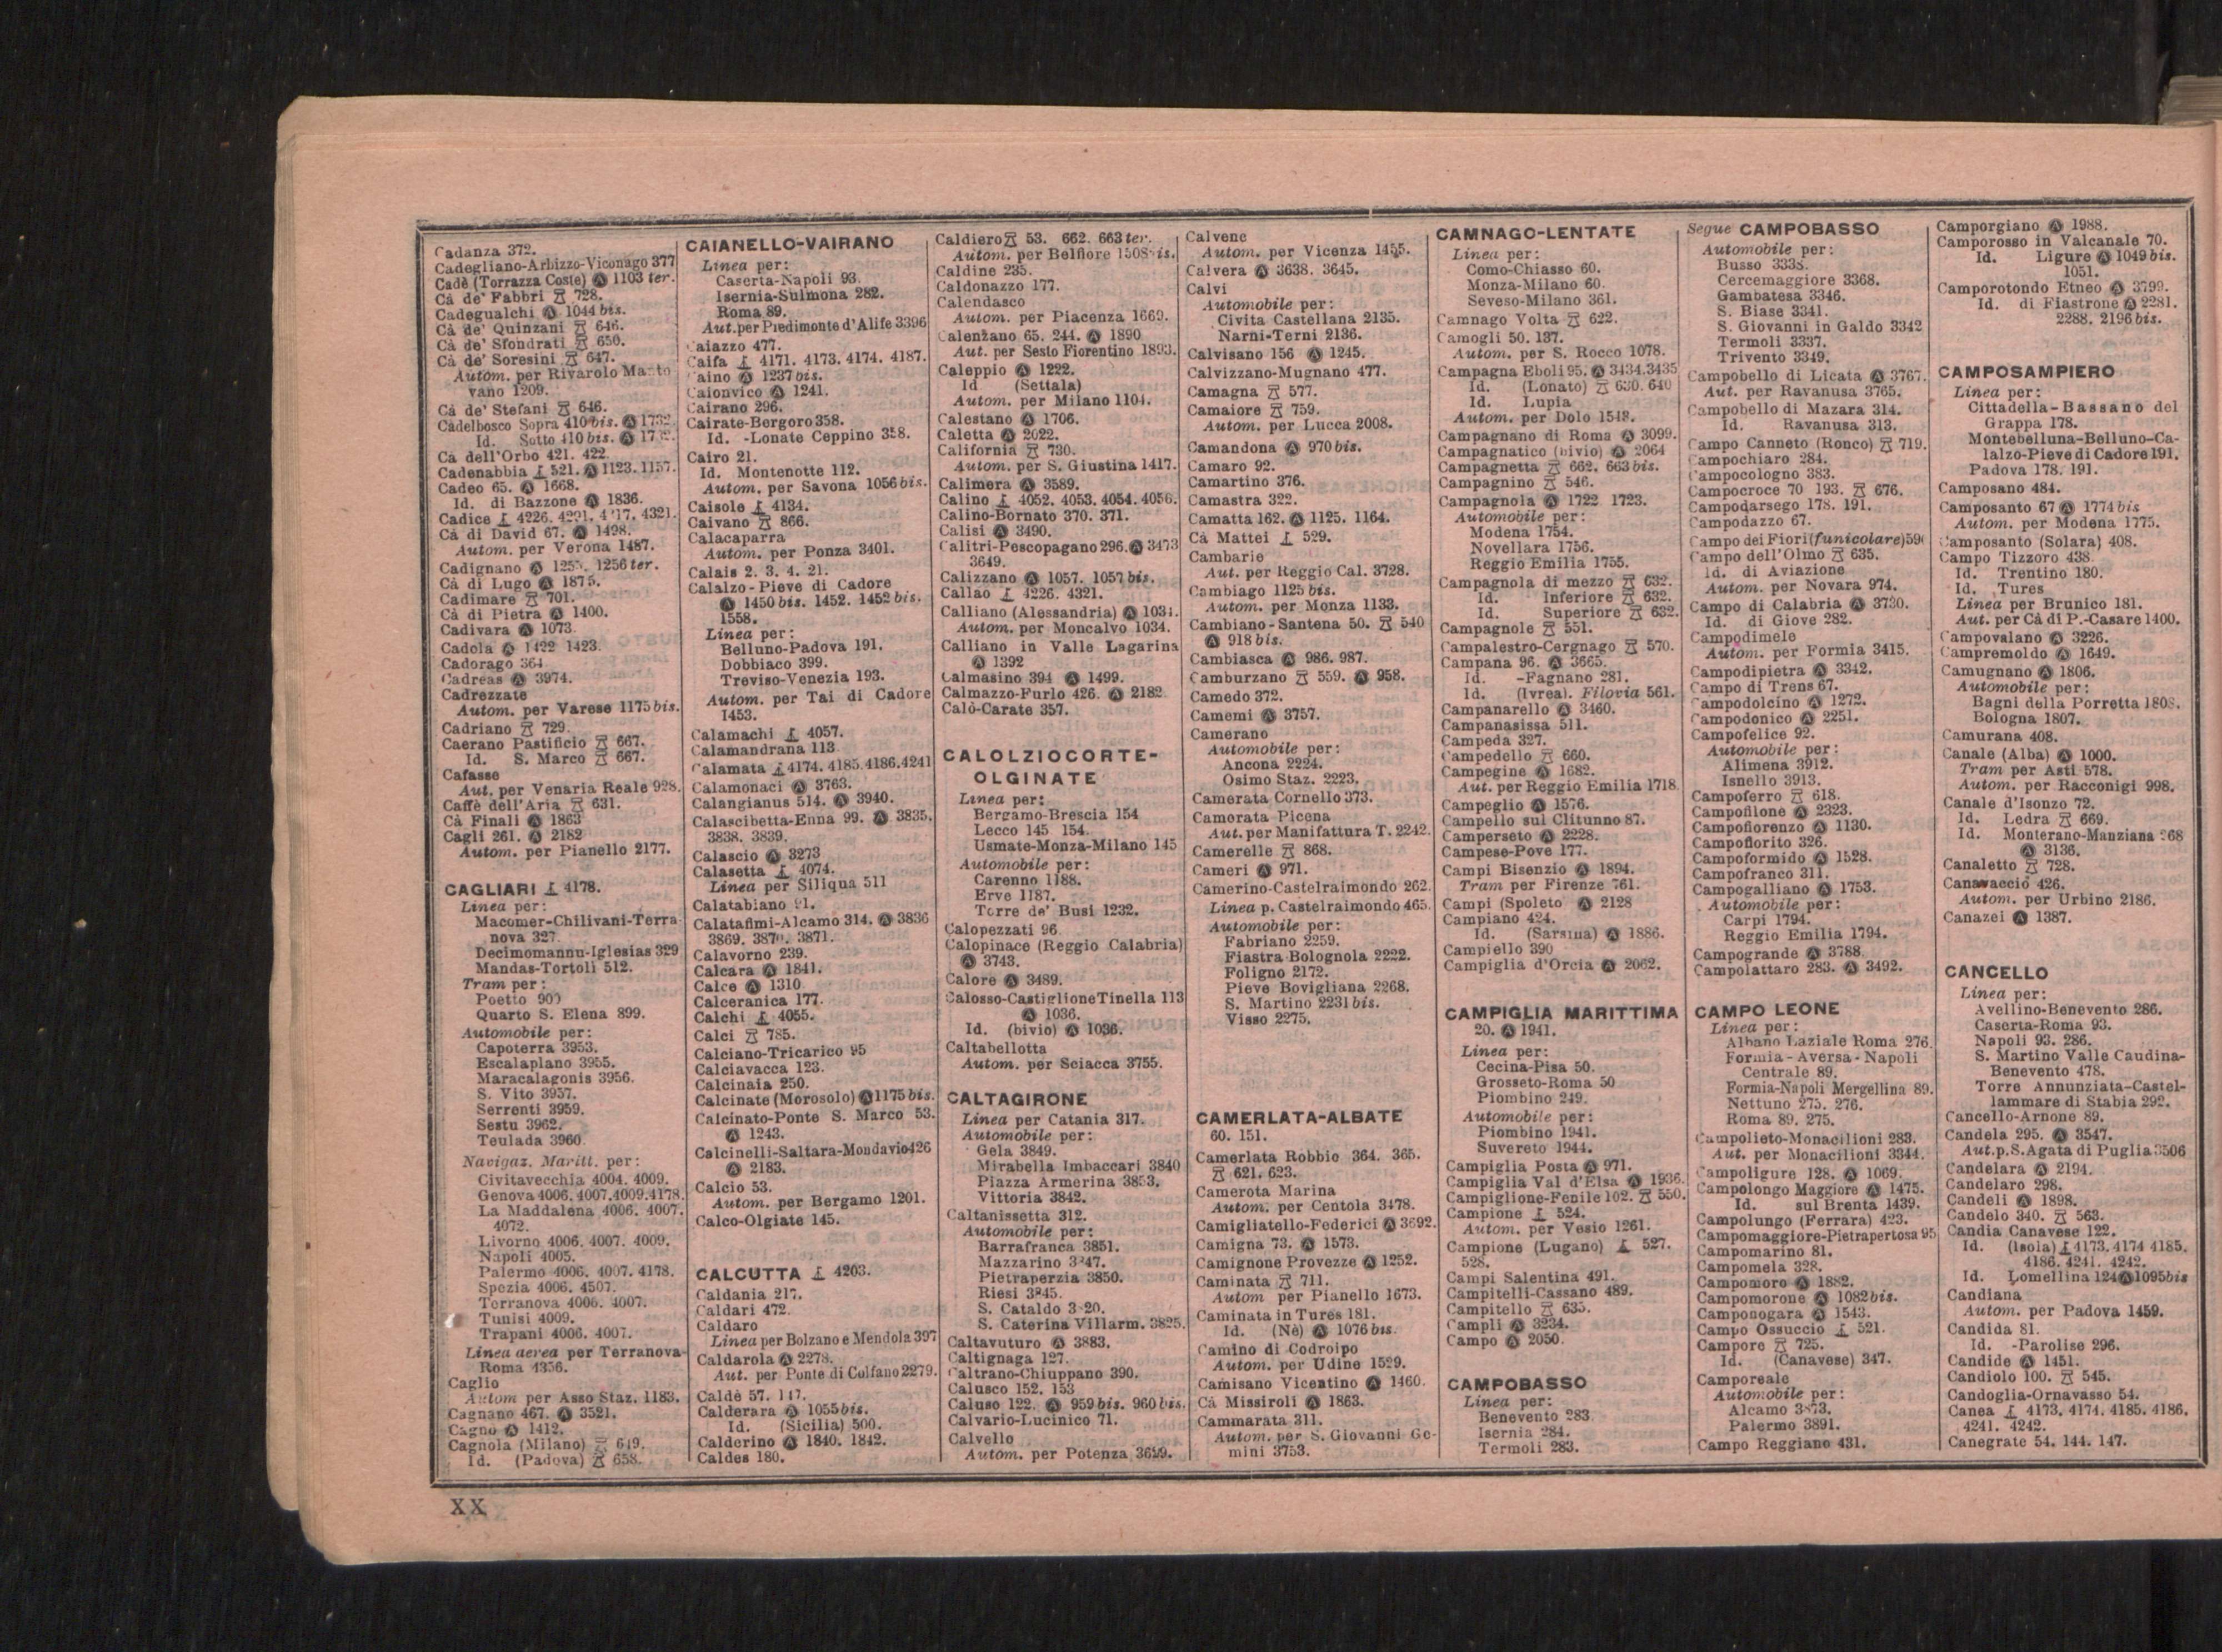 Cadanza 372.
Cadegliano-Arbizzo-Viconago 377
Cadè (Torrazza Coste) Ⓐ 1103 ter.
Cà de' Fabbri 728.
Cadegualchi Ⓐ 1044 bis.
Cà de' Quinzani 646.
Cà de' Sfondrati 650.
Cà de' Soresini 647.
Autom. per Rivarolo Manto
vano 1209.
Cà de' Stefani 646.
Cadelbosco Sopra 410 bis. Ⓐ 1732
Id. Sotto 410 bis. Ⓐ
Cà dell'Orbo 421. 422
Cadenabbia 521. Ⓐ 1123. 1157.
Cadeo 65. Ⓐ 1668.
Id. di Bazzone Ⓐ 1836.
Cadice 4226. 4321.
Cà di David 67. Ⓐ 1498.
Autom. per Verona 1487.
Cadignano Ⓐ 1256 ter.
Cà di Lugo Ⓐ 1875.
Cadimare 701.
Cà di Pietra Ⓐ 1400.
Cadivara Ⓐ 1073
Cadola Ⓐ 1422 1423.
Cadorago 364
Cadreas Ⓐ 3974.
Cadrezzate
Autom. per Varese 1175 bis.
Cadriano 729
Caerano Pastificio 667.
Id. S. Marco 667.
Cafasse
Aut. per Venaria Reale 928.
Caffè dell'Aria 631.
Cà Finali Ⓐ 1863
Cagli 261. Ⓐ 2182
Autom. per Pianello 2177.
CAGLIARI 4178.
Linea per:
Macomer-Chilivani-Terra-
nova 327
Decimomannu-Iglesias 329
Mandas-Tortoli 512.
Tram per:
Poetto 900
Quarto S. Elena 899.
Automobile per:
Capoterra 3953.
Escalaplano 3955.
Maracalagonis 3956.
S. Vito 3957.
Serrenti 3959.
Sestu 3962.
Teulada 3960.
Navigaz. Maritt. per:
Civitavecchia 4004. 4009.
Genova 4006. 4007. 4009. 4178.
La Maddalena 4006. 4007.
4072.
Livorno 4006. 4007. 4009.
Napoli 4005.
Palermo 4006. 4007. 4178.
Spezia 4006. 4507.
Terranova 4006. 4007.
Tunisi 4009.
Trapani 4006. 4007.
Linea aerea per Terranova-
Roma 4356.
Caglio
Autom per Asso Staz. 1183.
Cagnano 467. Ⓐ 3521.
Cagno Ⓐ 1412.
Cagnola (Milano) 649.
Id. (Padova) 658.
CAIANELLO-VAIRANO
Linea per:
Caserta-Napoli 93.
Isernia-Sulmona 282.
Roma 89.
Aut. per Piedimonte d'Alife 3396
Caiazzo 477.
Caifa 4171. 4173. 4174. 4187.
Caino Ⓐ 1237 bis.
Caionvico Ⓐ 1241.
Cairano 296.
Cairate-Bergoro 358.
Id. -Lonate Ceppino 358.
Cairo 21.
Id. Montenotte 112.
Autom. per Savona 1056 bis.
Caisole 4134.
Caivano 866.
Calacaparra
Autom. per Ponza 3401.
Calais 2. 3. 4. 21.
Calalzo-Pieve di Cadore
Ⓐ 1450 bis. 1452. 1452 bis.
1558.
Linea per:
Belluno-Padova 191.
Dobbiaco 399.
Treviso-Venezia 193.
Autom. per Tai di Cadore
1453.
Calamachi 4057.
Calamandrana 113
Calamata 4174. 4185. 4186. 4241
Calamonaci Ⓐ 3763.
Calangianus 514. Ⓐ 3940.
Calascibetta-Enna 99. Ⓐ 3835.
3838. 3839.
Calascio Ⓐ 3273
Calasetta 4074.
Linea per Siliqua 511
Calatabiano 91.
Calatafimi-Alcamo 314. Ⓐ 3836
3869. 3870. 3871.
Calavorno 239.
Calcara Ⓐ 1841.
Calce Ⓐ 1310
Calceranica 177.
Calchi 4055.
Calci 785.
Calciano-Tricarico 95
Calciavacca 123.
Calcinaia 250.
Calcinate (Morosolo) Ⓐ 1175 bis.
Calcinato-Ponte S. Marco 53.
Ⓐ 1243.
Calcinelli-Saltara-Mondavio 426
Ⓐ 2183.
Calcio 53.
Autom. per Bergamo 1201.
Calco-Olgiate 145.
CALCUTTA 4203.
Caldania 217.
Caldari 472.
Caldaro
Linea per Bolzano e Mendola 397
Caldarola Ⓐ 2278.
Aut. per Ponte di Colfano 2279.
Caldè 57. 147.
Calderara Ⓐ 1055 bis.
Id. (Sicilia) 500.
Calderino Ⓐ 1840. 1842.
Caldes 180.
Caldiero 53. 662. 663 ter.
Autom. per Belfiore 1508 bis.
Caldine 235.
Caldonazzo 177.
Calendasco
Autom. per Piacenza 1669.
Calenzano 65. 244. Ⓐ 1890
Aut. per Sesto Fiorentino 1893.
Caleppio Ⓐ 1222.
Id (Settala)
Autom. per Milano 1104.
Calestano Ⓐ 1706.
Caletta Ⓐ 2022.
California 730.
Autom. per S. Giustina 1417.
Calimera Ⓐ 3589.
Calino 4052. 4053. 4054. 4056.
Calino-Bornato 370. 371.
Calisi Ⓐ 3490.
Calitri-Pescopagano 296. Ⓐ 3473
3649.
Calizzano Ⓐ 1057. 1057 bis.
Callao 4226. 4321.
Calliano (Alessandria) Ⓐ 1034.
Autom. per Moncalvo 1034.
Calliano in Valle Lagarina
Ⓐ 1392
Calmasino 394 Ⓐ 1499.
Calmazzo-Furlo 426. Ⓐ 2182
Calò-Carate 357.
CALOLZIOCORTE-
OLGINATE
Linea per:
Bergamo-Brescia 154
Lecco 145 154
Usmate-Monza-Milano 145
Automobile per:
Carenno 1188.
Erve 1187.
Torre de' Busi 1232.
Calopezzati 96
Calopinace (Reggio Calabria)
Ⓐ 3743.
Calore Ⓐ 3489.
Calosso-Castiglione Tinella 113
Ⓐ 1036.
Id. (bivio) Ⓐ 1036.
Caltabellotta
Autom. per Sciacca 3755.
CALTAGIRONE
Linea per Catania 317.
Automobile per:
Gela 3849.
Mirabella Imbaccari 3840
Piazza Armerina 3853.
Vittoria 3842.
Caltanissetta 312.
Automobile per:
Barrafranca 3851.
Mazzarino 3847.
Pietraperzia 3850.
Riesi 3845.
S. Cataldo 3820.
S. Caterina Villarm. 3825.
Caltavuturo Ⓐ 3883.
Caltignaga 127.
Caltrano-Chiuppano 390.
Calusco 152. 153
Caluso 122. Ⓐ 959 bis. 960 bis.
Calvario-Lucinico 71.
Calvello
Autom. per Potenza 3629.
Calvene
Autom. per Vicenza 1455.
Calvera Ⓐ 3638. 3645.
Calvi
Automobile per:
Civita Castellana 2135.
Narni-Terni 2136.
Calvisano 156 Ⓐ 1245.
Calvizzano-Mugnano 477.
Camagna 577.
Camaiore 759.
Autom. per Lucca 2008.
Camandona Ⓐ 970 bis.
Camaro 92.
Camartino 376.
Camastra 322.
Camatta 162. Ⓐ 1125. 1164.
Cà Mattei 529.
Cambarie
Aut. per Reggio Cal. 3728.
Cambiago 1125 bis.
Autom. per Monza 1133.
Cambiano-Santena 50. 540
Ⓐ 918 bis.
Cambiasca Ⓐ 986. 987.
Camburzano 559. Ⓐ 958.
Camedo 372.
Camemi Ⓐ 3757.
Camerano
Automobile per:
Ancona 2224.
Osimo Staz. 2223.
Camerata Cornello 373.
Camerata Picena
Aut. per Manifattura T. 2242.
Camerelle 868.
Cameri Ⓐ 971.
Camerino-Castelraimondo 262.
Linea p. Castelraimondo 465.
Automobile per:
Fabriano 2259.
Fiastra Bolognola 2222.
Foligno 2172.
Pieve Bovigliana 2268.
S. Martino 2231 bis.
Visso 2275.
CAMERLATA-ALBATE
60. 151.
Camerlata Robbio 364. 365.
621. 623.
Camerota Marina
Autom. per Centola 3478.
Camigliatello-Federici Ⓐ 3692.
Camigna 73. Ⓐ 1573.
Camignone Provezze Ⓐ 1252.
Caminata 711.
Autom per Pianello 1673.
Caminata in Tures 181.
Id. (Nè) Ⓐ 1076 bis.
Camino di Codroipo
Autom. per Udine 1529.
Camisano Vicentino Ⓐ 1460.
Cà Missiroli Ⓐ 1863.
Cammarata 311.
Autom. per S. Giovanni Ge-
mini 3753.
CAMNAGO-LENTATE
Linea per:
Como-Chiasso 60.
Monza-Milano 60.
Seveso-Milano 361.
Camnago Volta 622.
Camogli 50. 137.
Autom. per S. Rocco 1078.
Campagna Eboli 95. Ⓐ 3434. 3435
Id. (Lonato) 630. 640
Id. Lupia
Autom. per Dolo 1548.
Campagnano di Roma Ⓐ 3099.
Campagnatico (bivio) Ⓐ 2064
Campagnetta 662. 663 bis.
Campagnino 546.
Campagnola Ⓐ 1722 1723.
Automobile per:
Modena 1754.
Novellara 1756.
Reggio Emilia 1755.
Campagnola di mezzo 632.
Id. Inferiore 632.
Id. Superiore 632.
Campagnole 551.
Campalestro-Cergnago 570.
Campana 96. Ⓐ 3665.
Id. -Fagnano 281.
Id. (Ivrea). Filovia 561.
Campanarello Ⓐ 3460.
Campanasissa 511.
Campeda 327.
Campedello 660.
Campegine Ⓐ 1682.
Aut. per Reggio Emilia 1718.
Campeglio Ⓐ 1576.
Campello sul Clitunno 87.
Camperseto Ⓐ 2228.
Campese-Pove 177.
Campi Bisenzio Ⓐ 1894.
Tram per Firenze 761.
Campi (Spoleto Ⓐ 2128
Campiano 424.
Id. (Sarsina) Ⓐ 1886.
Campiello 390
Campiglia d'Orcia Ⓐ 2062.
CAMPIGLIA MARITTIMA
20. Ⓐ 1941.
Linea per:
Cecina-Pisa 50.
Grosseto-Roma 50
Piombino 249.
Automobile per:
Piombino 1941.
Suvereto 1944.
Campiglia Posta Ⓐ 971.
Campiglia Val d'Elsa Ⓐ 1936.
Campiglione-Fenile 102. 550.
Campione 524.
Autom. per Vesio 1261.
Campione (Lugano) 527.
528.
Campi Salentina 491.
Campitelli-Cassano 489.
Campitello 635.
Campli Ⓐ 3234.
Campo Ⓐ 2050.
CAMPOBASSO
Linea per:
Benevento 283
Isernia 284.
Termoli 283.
Segue CAMPOBASSO
Automobile per:
Busso 3338.
Cercemaggiore 3368.
Gambatesa 3346.
S. Biase 3341.
S. Giovanni in Galdo 3342
Termoli 3337.
Trivento 3349.
Campobello di Licata Ⓐ 3767.
Aut. per Ravanusa 3765.
Campobello di Mazara 314.
Id. Ravanusa 313.
Campo Canneto (Ronco) 719.
Campochiaro 284.
Campocologno 383.
Campocroce 70 193. 676.
Campodarsego 178. 191.
Campodazzo 67.
Campo dei Fiori (funicolare) 590
Campo dell'Olmo 635.
Id. di Aviazione
Autom. per Novara 974.
Campo di Calabria Ⓐ 3730.
Id. di Giove 282.
Campodimele
Autom. per Formia 3415.
Campodipietra Ⓐ 3342.
Campo di Trens 67.
Campodolcino Ⓐ 1272.
Campodonico Ⓐ 2251.
Campofelice 92.
Automobile per:
Alimena 3912.
Isnello 3913.
Campoferro 618.
Campofilone Ⓐ 2323.
Campofiorenzo Ⓐ 1130.
Campofiorito 326.
Campoformido Ⓐ 1528.
Campofranco 311.
Campogalliano Ⓐ 1753.
Automobile per:
Carpi 1794.
Reggio Emilia 1794.
Campogrande Ⓐ 3788
Campolattaro 283. Ⓐ 3492.
CAMPO LEONE
Linea per:
Albano Laziale Roma 276.
Formia-Aversa-Napoli
Centrale 89.
Formia-Napoli Mergellina 89.
Nettuno 275. 276.
Roma 89. 275.
Campolieto-Monacilioni 283.
Aut. per Monacilioni 3344.
Campoligure 128. Ⓐ 1069.
Campolongo Maggiore Ⓐ 1475.
Id. sul Brenta 1439.
Campolungo (Ferrara) 423.
Campomaggiore-Pietrapertosa 95
Campomarino 81.
Campomela 328.
Campomoro Ⓐ 1882.
Campomorone Ⓐ 1082 bis.
Camponogara Ⓐ 1543.
Campo Ossuccio 521.
Campore 725.
Id. (Canavese) 347.
Camporeale
Automobile per:
Alcamo 3873.
Palermo 3891.
Campo Reggiano 431.
Camporgiano Ⓐ 1988.
Camporosso in Valcanale 70.
Id. Ligure Ⓐ 1049 bis.
1051.
Camporotondo Etneo Ⓐ 3799.
Id. di Fiastrone Ⓐ 2281.
2288. 2196 bis.
CAMPOSAMPIERO
Linea per:
Cittadella-Bassano del
Grappa 178.
Montebelluna-Belluno-Ca-
lalzo-Pieve di Cadore 191.
Padova 178. 191.
Camposano 484.
Camposanto 67 Ⓐ 1774 bis
Autom. per Modena 1775.
Camposanto (Solara) 408.
Campo Tizzoro 438
Id. Trentino 180.
Id. Tures
Linea per Brunico 181.
Aut. per Cà di P.-Casare 1400.
Campovalano Ⓐ 3226.
Campremoldo Ⓐ 1649.
Camugnano Ⓐ 1806.
Automobile per:
Bagni della Porretta 1808.
Bologna 1807.
Camurana 408.
Canale (Alba) Ⓐ 1000.
Tram per Asti 578.
Autom. per Racconigi 998.
Canale d'Isonzo 72.
Id. Ledra 669.
Id. Monterano-Manziana 268
Ⓐ 3136.
Canaletto 728.
Canavaccio 426.
Autom. per Urbino 2186.
Canazei Ⓐ 1387.
CANCELLO
Linea per:
Avellino-Benevento 286.
Caserta-Roma 93.
Napoli 93. 286.
S. Martino Valle Caudina-
Benevento 478.
Torre Annunziata-Castel-
lammare di Stabia 292.
Cancello-Arnone 89.
Candela 295. Ⓐ 3547.
Aut. p. S. Agata di Puglia 3506
Candelara Ⓐ 2194.
Candelaro 298.
Candeli Ⓐ 1898.
Candelo 340. 563.
Candia Canavese 122.
Id. (Isola) 4173. 4174 4185.
4186. 4241. 4242.
Id. Lomellina 124 Ⓐ 1095 bis
Candiana
Autom. per Padova 1459.
Candida 81.
Id. -Parolise 296.
Candide Ⓐ 1451.
Candiolo 100. 545.
Candoglia-Ornavasso 54.
Canea 4173. 4174. 4185. 4186.
4241. 4242.
Canegrate 54. 144. 147.
XX